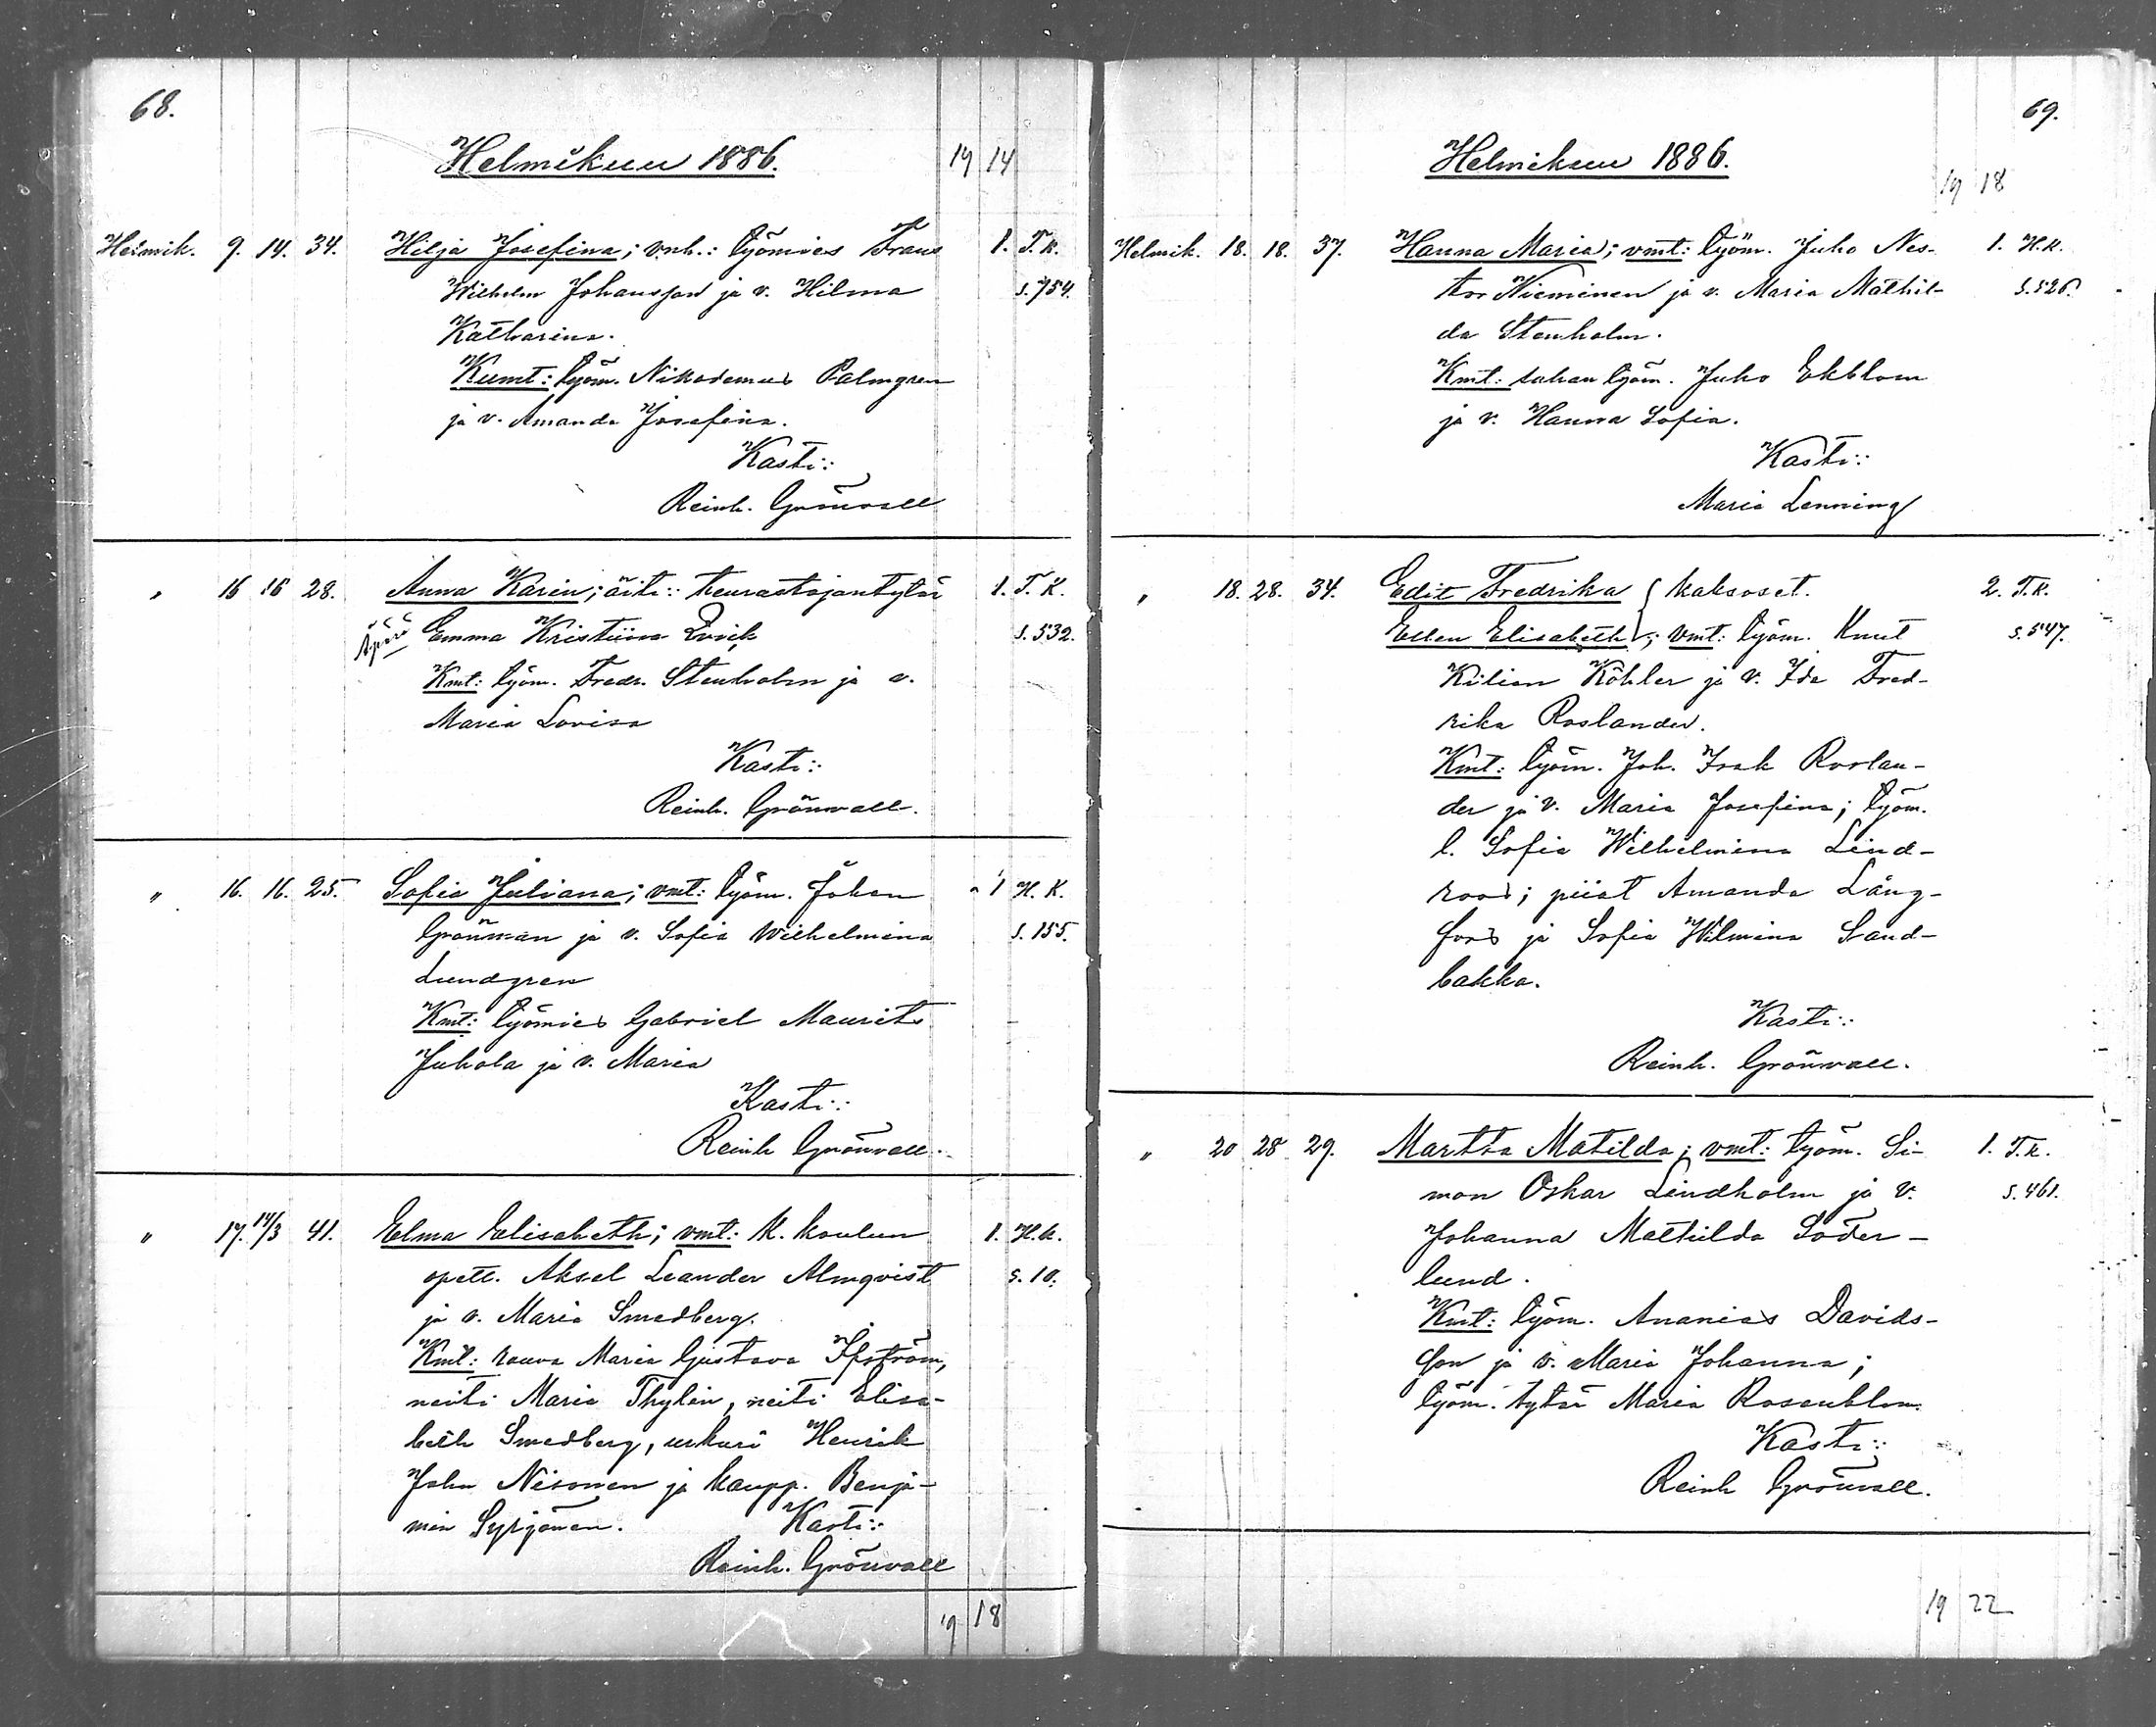 68.
Helmikuu 1886.
19 14
Helmik. 9. 14. 34. Hilja Josefina; vnh.: työmies Frans 1. T.K.
Wilhelm Johansson ja v. Hilma s. 754.
Katharina.
Kumt: työm. Nikodemus Palmgren
ja v. Amanda Josefina.
Kasti:
Reinh. Grönvall
" 16 16 28. Anna Karin; äiti: teurastajantytär 1. T.K.
Äpärä Emma Kristiina s. 532.
Kmt: työm. Fredr. Stenholm ja v.
Maria Lovisa
Kasti:
Reinh. Grönvall.
" 16. 16. 25. Sofia Juliana; vmt: työm. Johan 1 H.K.
Grönman ja v. Sofia Wilhelmina s. 155.
Lundgren
Kmt: työmies Gabriel Maurits
Juhola ja v. Maria
Kasti:
Reinh Grönvall.
" 17. 14/3 41. Elma Elisabeth; vmt: k. koulun 1. H.K.
opett. Aksel Leander Almqvist s. 10.
ja v. Maria Smedberg.
Kmt: rouva Maria Gustava
neiti Maria Thylin, neiti Elisa-
beth Smedberg, urkuri Henrik
John Nisonen ja kaupp. Benja-
min Syrjänen. Kasti:
Reinh. Grönvall
19 18
69.
Helmikuu 1886.
19 18
Helmik. 18. 18. 37. Hanna Maria; vmt: työm. Juho Nes- 1. H.K.
tor Nieminen ja v. Maria Mathil- s. 526.
da Stenholm.
Kmt: sahan työm. Juho Ekblom
ja v. Hanna Sofia.
Kasti:
Maria Lenning
" 18. 28. 34. Edit Fredrika { kaksoset. 2. T.K.
Ellen Elisabeth; vmt: työm. Knut s. 547.
Kilian Köhler ja v. Ida Fred-
rika Roslander.
Kmt: työm. Joh. Isak Roslan-
der ja v. Maria Josefina; työm.
l. Sofia Wilhelmina Lind-
roos; piiat Amanda Lång-
fors ja Sofia Wilmina Sand-
bakka.
Kasti:
Reinh. Grönvall.
" 20 28 29. Martta Matilda; vmt: työm. Si- 1. T.K.
mon Oskar Lindholm ja v. s. 461.
Johanna Mathilda Söder-
lund.
Kmt: työm. Ananias Davids-
son ja v. Maria Johanna;
työm. tytär Maria Rosenblom.
Kasti:
Reinh Grönvall.
19 22